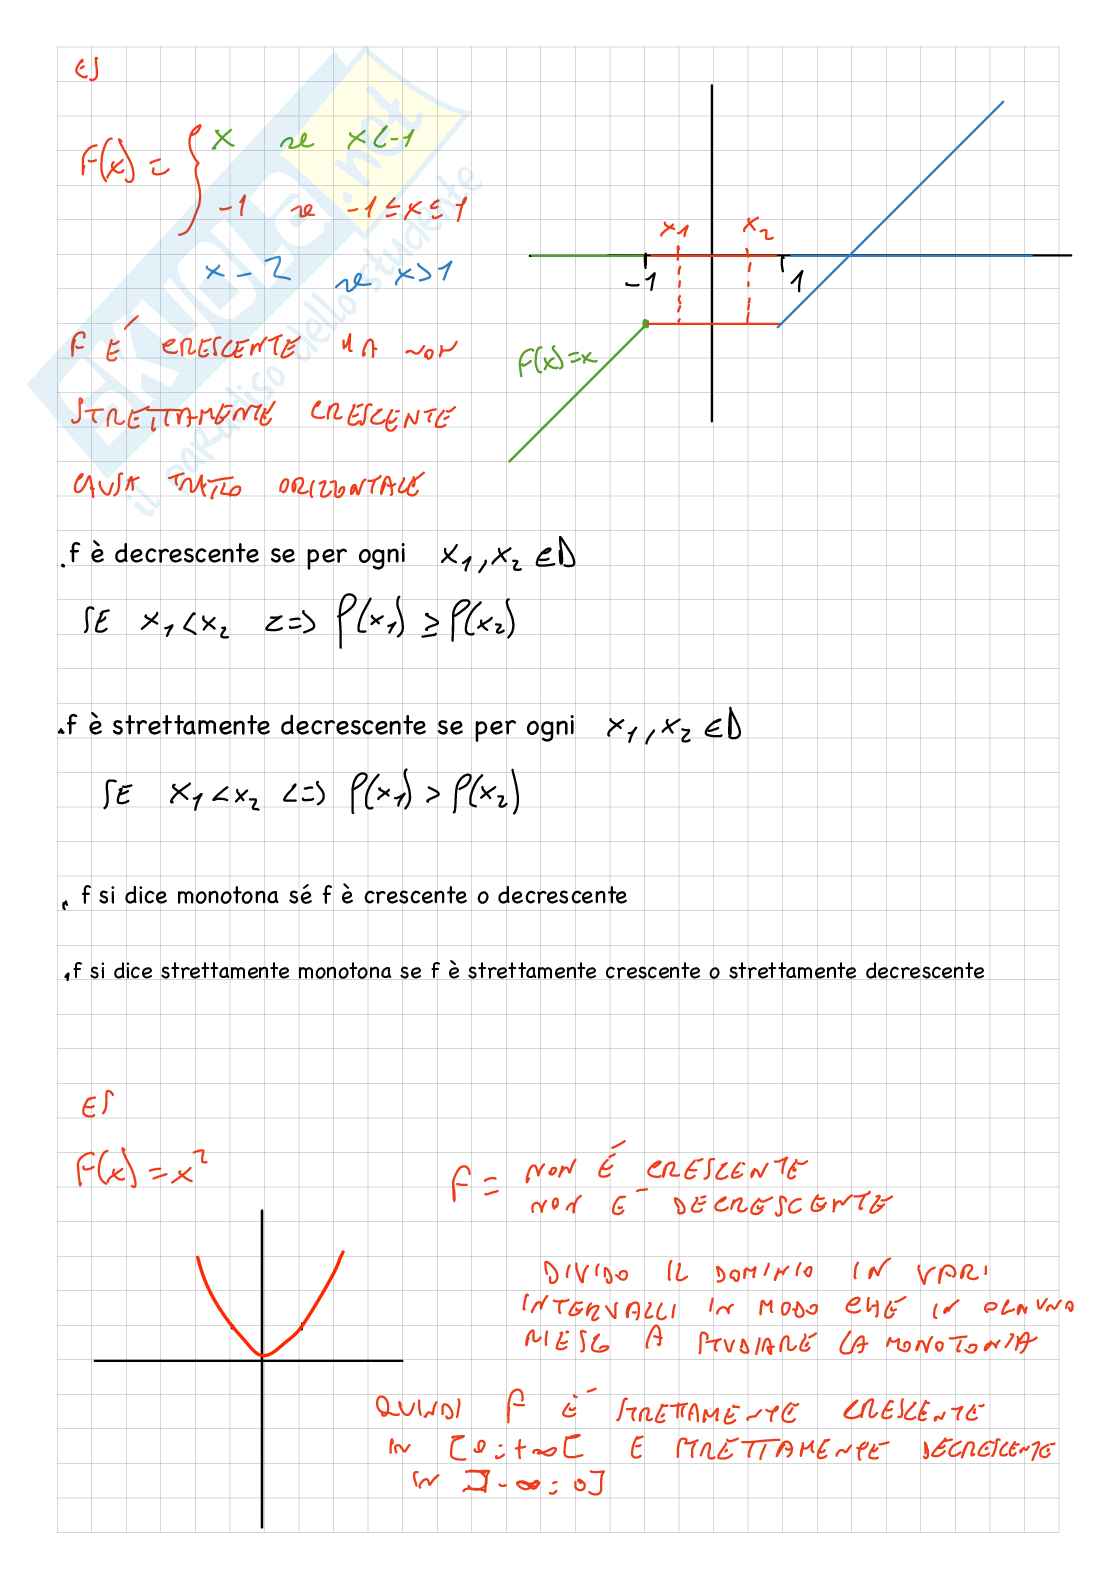 ES
F(x) = { x se x<-1
-1 se -1≤x≤1
x-2 se x>1
x1 x2
-1 1
F(x)=x
F E' CRESCENTE MA NON
STRETTAMENTE CRESCENTE
CAUSA TRATTO ORIZZONTALE
SKUOLA.net
il paradiso dello studente
.f è decrescente se per ogni x1, x2 ∈D
SE x1<x2 <=> f(x1) ≥ f(x2)
.f è strettamente decrescente se per ogni x1, x2 ∈D
SE x1<x2 <=> f(x1) > f(x2)
. f si dice monotona sé f è crescente o decrescente
.f si dice strettamente monotona se f è strettamente crescente o strettamente decrescente
ES
F(x) = x²
F = NON É CRESCENTE
NON E' DECRESCENTE
DIVIDO IL DOMINIO IN VARI
INTERVALLI IN MODO CHE IN OGNUNO
RIESCO A STUDIARE LA MONOTONIA
QUINDI F E' STRETTAMENTE CRESCENTE
IN [0;+∞[ E STRETTAMENTE DECRESCENTE
IN ]-∞;0]